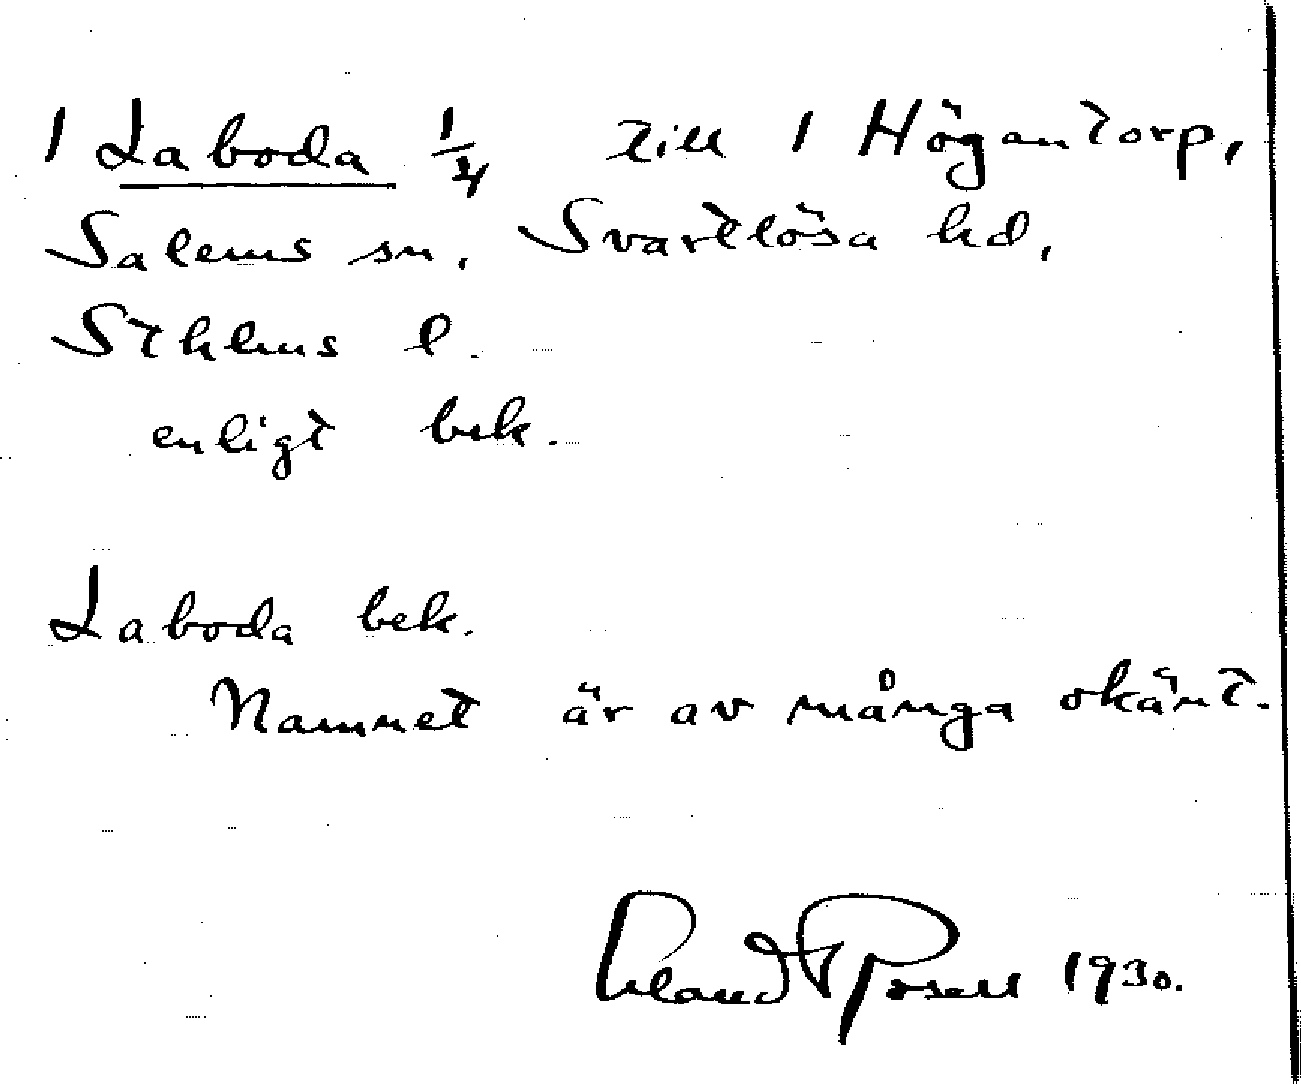 1 Laboda 1/4 till 1 Högantorp,
Salems sn, Svartlösa hd,
Sthlms l.
enligt bek.
Laboda bek.
Namnet är av många okänt.
Erland Rosell 1930.